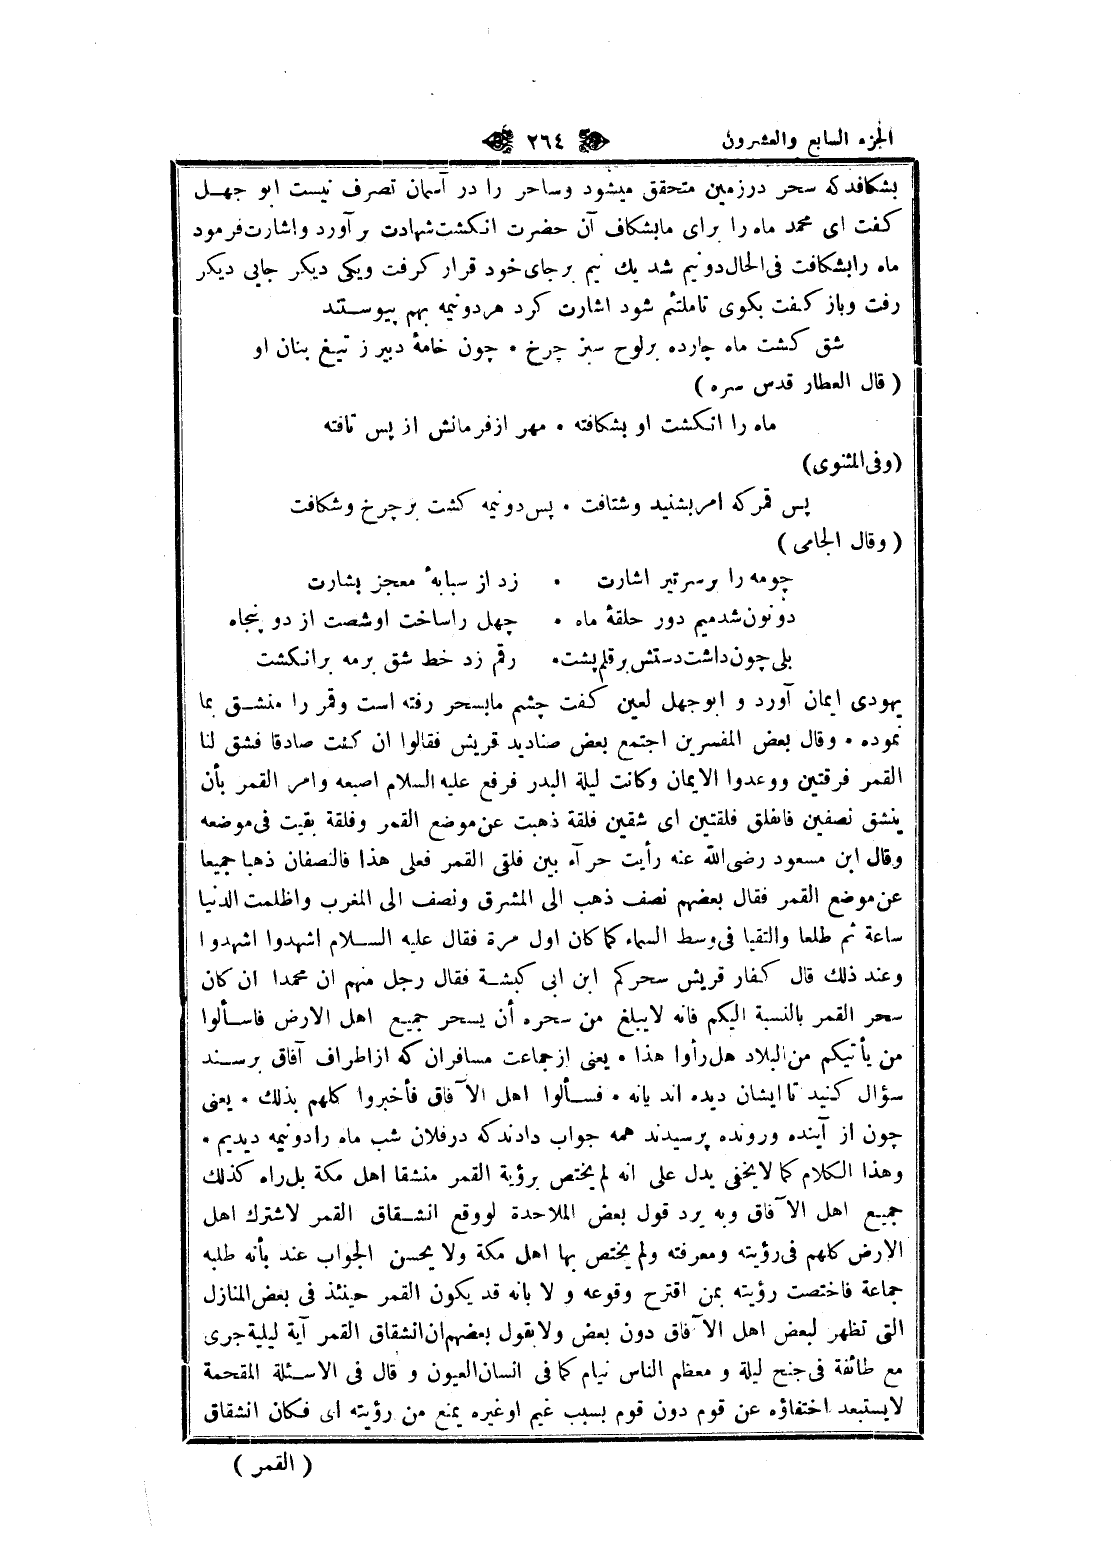 الجزء السابع والعشرون ٢٦٤
بشكافد كه سحر در زمين متحقق ميشود وساحر را در آسمان تصرف نيست ابو جهل
كفت اى محمد ماه را براى ما بشكاف آن حضرت انكشت شهادت بر آورد واشارت فرمود
ماه را بشكافت فى الحال دو نيم شد يك نيم بر جاى خود قرار كرفت ويكى ديكر جايى ديكر
رفت وباز كفت بكوى تا ملتئم شود اشارت كرد هر دو نيمه بهم پيوستند
شق كشت ماه چارده بر لوح سبز چرخ • چون خامۀ دبير ز تيغ بنان او
( قال العطار قدس سره )
ماه را انكشت او بشكافته • مهر از فرمانش از پس تافته
(وفى المثنوى)
پس قمر كه امر بشنيد وشتافت • پس دو نيمه كشت بر چرخ وشكافت
( وقال الجامى )
چو مه را بر سر تير اشارت • زد از سبابۀ معجز بشارت
دو نون شد ميم دور حلقۀ ماه • چهل را ساخت او شصت از دو پنجاه
بلى چون داشت دستش بر قلم پشت • رقم زد خط شق بر مه بر انكشت
يهودى ايمان آورد و ابو جهل لعين كفت چشم ما بسحر رفته است وقمر را منشق بما
نموده • وقال بعض المفسرين اجتمع بعض صناديد قريش فقالوا ان كنت صادقا فشق لنا
القمر فرقتين ووعدوا الايمان وكانت ليلة البدر فرفع عليه السلام اصبعه وامر القمر بأن
ينشق نصفين فانفلق فلقتين اى شقين فلقة ذهبت عن موضع القمر وفلقة بقيت فى موضعه
وقال ابن مسعود رضى الله عنه رأيت حرآء بين فلقى القمر فعلى هذا فالنصفان ذهبا جميعا
عن موضع القمر فقال بعضهم نصف ذهب الى المشرق ونصف الى المغرب واظلمت الدنيا
ساعة ثم طلعا والتقيا فى وسط السماء كما كان اول مرة فقال عليه السلام اشهدوا اشهدوا
وعند ذلك قال كفار قريش سحركم ابن ابى كبشة فقال رجل منهم ان محمدا ان كان
سحر القمر بالنسبة اليكم فانه لا يبلغ من سحره أن يسحر جميع اهل الارض فاسألوا
من يأتيكم من البلاد هل رأوا هذا • يعنى از جماعت مسافران كه از اطراف آفاق برسند
سؤال كنيد تا ايشان ديده اند يانه • فسألوا اهل الآفاق فأخبروا كلهم بذلك • يعنى
چون از آينده ورونده پرسيدند همه جواب دادند كه در فلان شب ماه را دو نيمه ديديم •
وهذا الكلام كما لا يخفى يدل على انه لم يختص برؤية القمر منشقا اهل مكة بل راه كذلك
جميع اهل الآفاق وبه يرد قول بعض الملاحدة لو وقع انشقاق القمر لاشترك اهل
الارض كلهم فى رؤيته ومعرفته ولم يختص بها اهل مكة ولا يحسن الجواب عند بأنه طلبه
جماعة فاختصت رؤيته بمن اقترح وقوعه و لا بانه قد يكون القمر حينئذ فى بعض المنازل
التى تظهر لبعض اهل الآفاق دون بعض ولا بقول بعضهم ان انشقاق القمر آية ليلية جرى
مع طائفة فى جنح ليلة و معظم الناس نيام كما فى انسان العيون و قال فى الاسئلة المقحمة
لا يستبعد اختفاؤه عن قوم دون قوم بسبب غيم او غيره يمنع من رؤيته اى فكان انشقاق
( القمر )